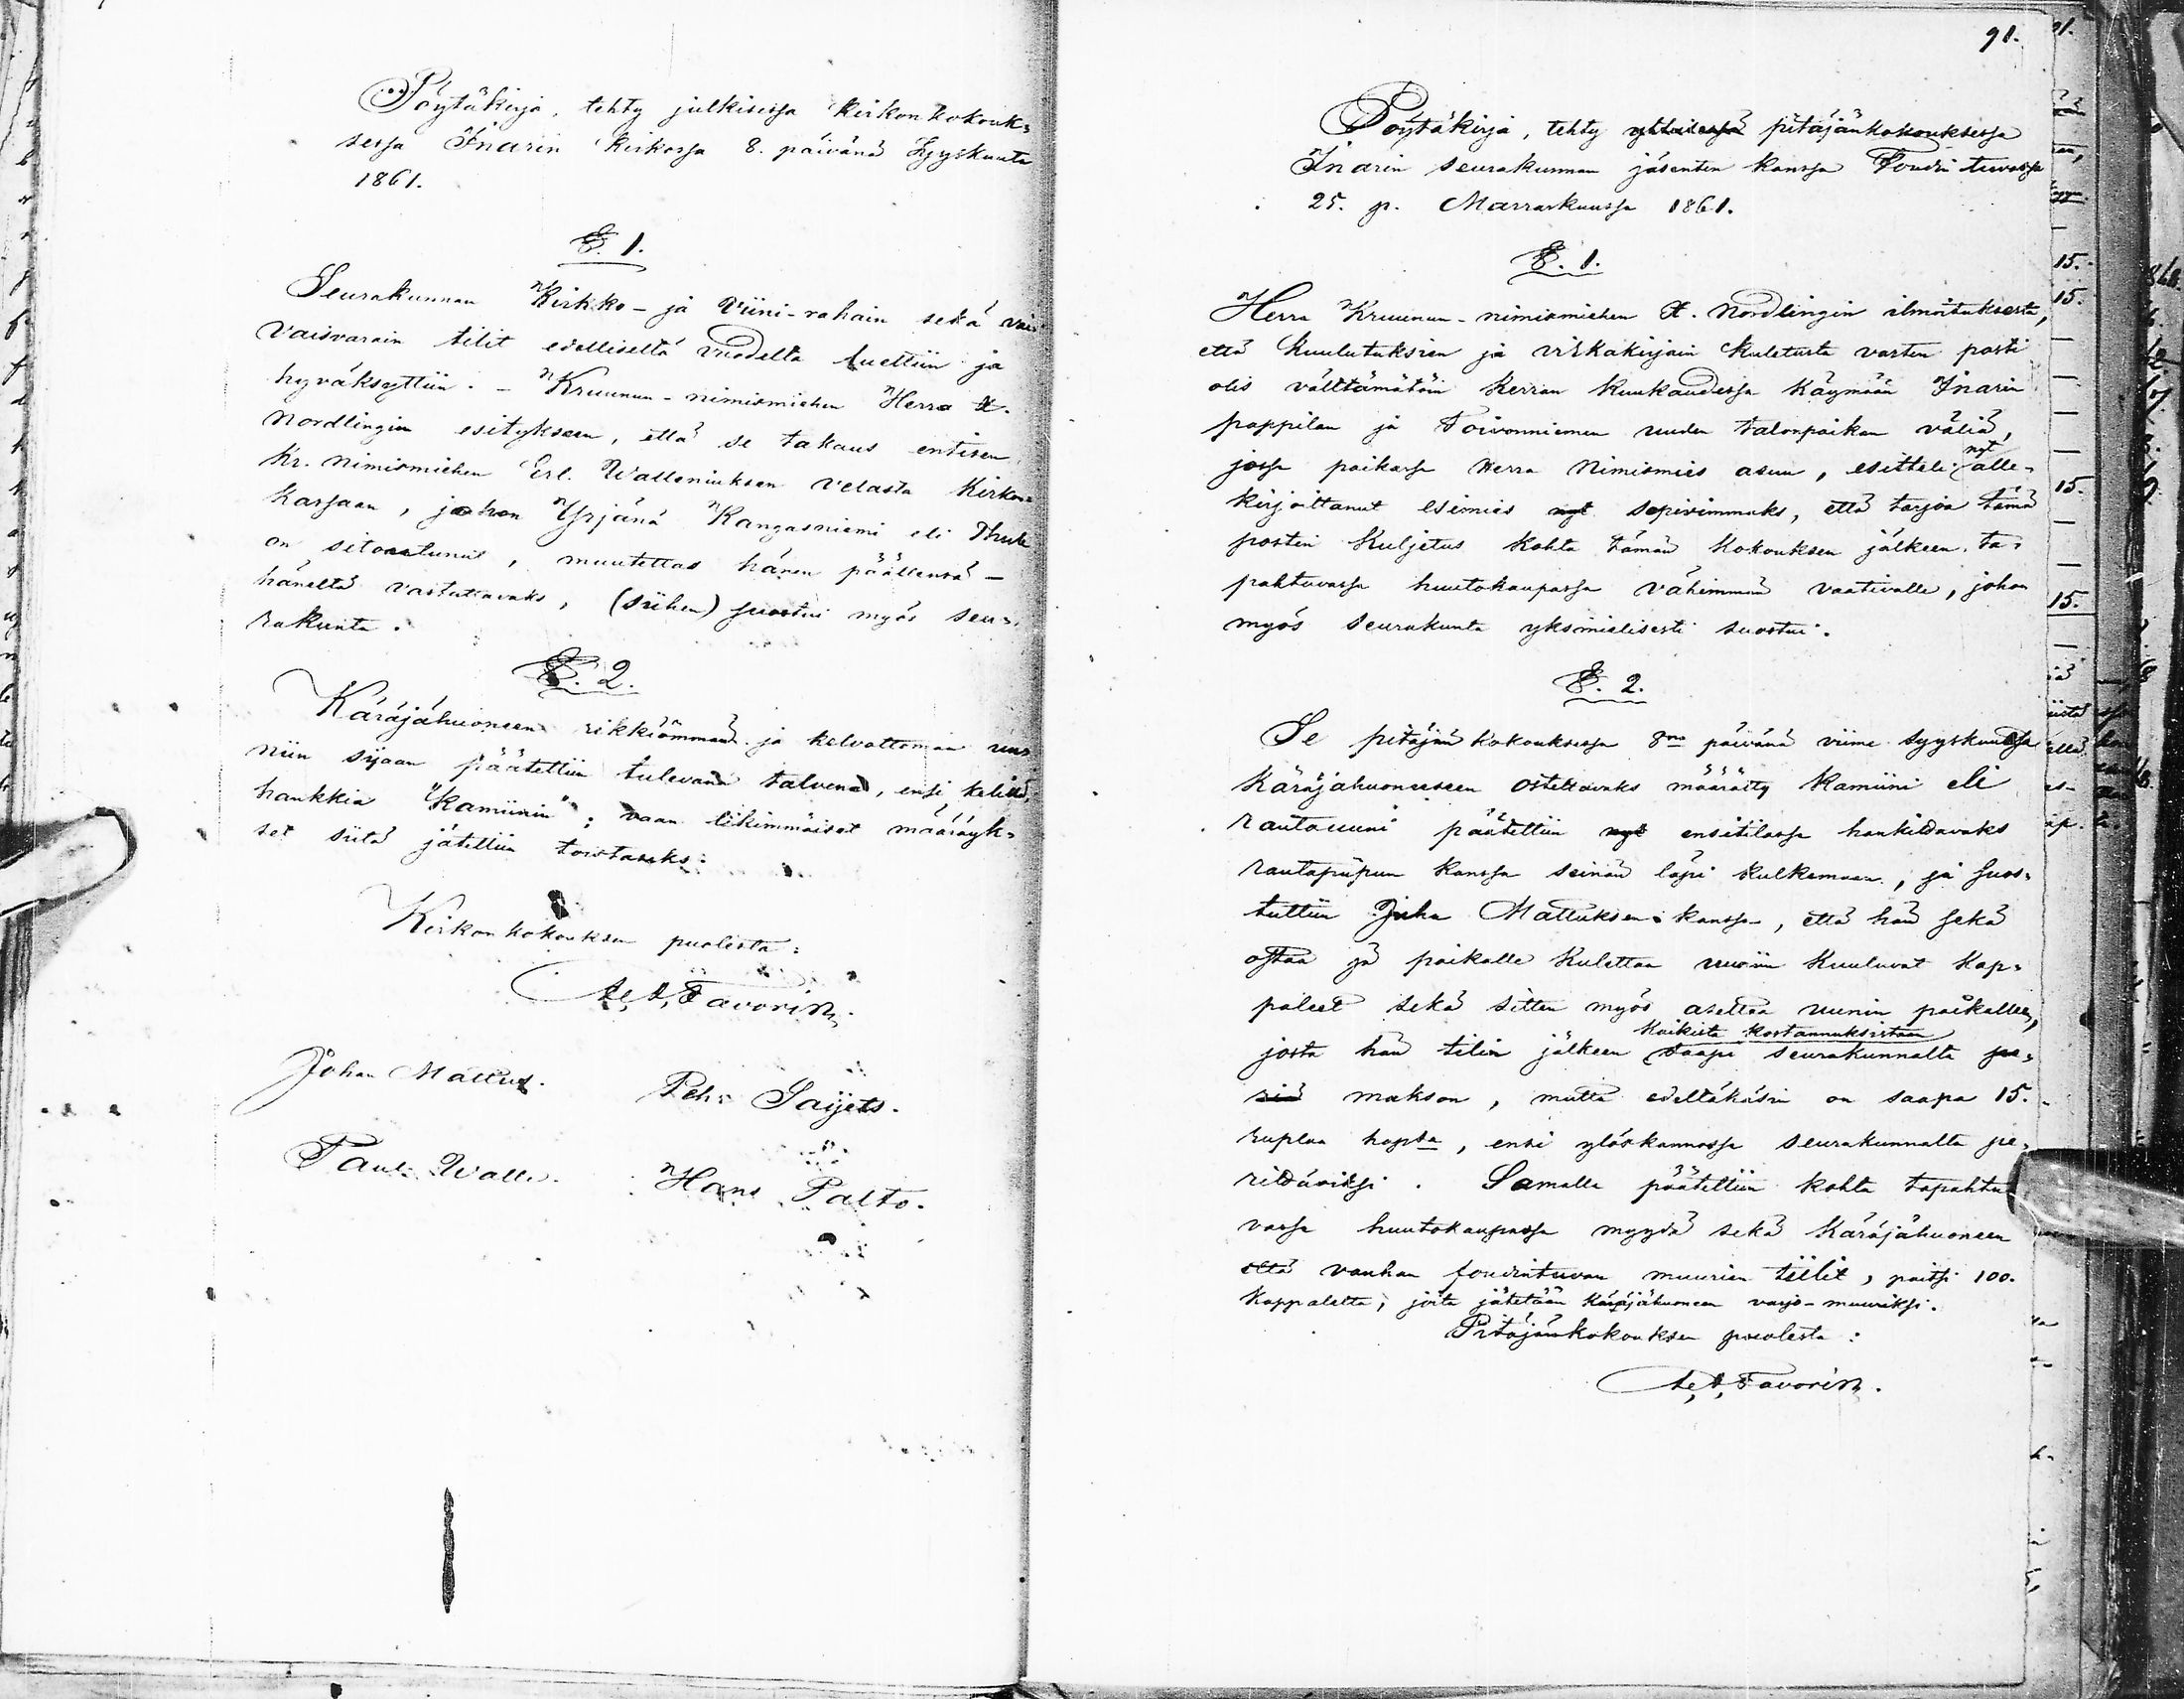 Pöytäkirja, tehty julkisessa Kirkonkokouk=
sessa Inarin Kirkossa 8. päivänä Syyskuuta
1861.
§. 1.
Seurakunnan Kirkko- ja Viini-rahain sekä
Vaisvarain tilit edelliseltä vuodelta luettiin ja
hyväksyttiin. - Kruunun-nimismiehen Herra A.
Nordlingin esitykseen, että se takaus entisen
Kr. nimismiehen Erl. Walleniuksen velasta Kirkon
Kassaan, johon Yrjänä Kangasniemi eli Thule
on sitoutunut, muutettas hänen päällensä -
häneltä vastattavaks, (siihen) suostui myös seu=
rakunta.
§. 2.
Käräjähuoneen rikkiömmän ja kelvottoman uu=
niin sijaan päätettiin tulevana talvena, ensi kelillä,
hankkia "Kamiinin"; vaan likimmäiset määräyk=
set siitä jätettiin toistaseks.
Kirkonkokouksen puolesta:
A. A. Favorin.
Johan Mattus.
Pehr Saijets.
Paul Walle.
Hans Palto.
91.
Pöytäkirja, tehty yhteisessä pitäjänkokouksessa
Inarin seurakunnan jäsenten kanssa Foudin tuvassa
25. p. Marraskuussa 1861.
§. 1.
Herra Kruunun-nimismiehen A. Nordlingin ilmoituksesta,
että Kuulutuksien ja virkakirjain Kuletusta varten posti
olis välttämätöin Kerran Kuukaudessa Käymään Inarin
pappilan ja Toivonniemen uuden talonpaikan väliä,
nyt
jossa paikassa Herra Nimismies asuu, esitteli alle=
kirjoittanut esimies nyt sopivimmaks, että tarjoa tämä
postin Kuljetus kohta tämän Kokouksen jälkeen ta=
pahtuvassa huutokaupassa vähimmän vaativalle, johon
myös seurakunta yksimielisesti suostui.
§. 2.
Se pitäjän kokouksessa 8na päivänä viime syyskuussa
Käräjähuoneeseen ostettavaks määrätty Kamiini eli
rautauuni päätettiin nyt ensitilassa hankittavaks
rautapiipun kanssa seinän läpi kulkemaan, ja suos=
tuttiin Juha Mattuksen kanssa, että hän sekä
ostaa ja paikalle Kulettaa uuniin Kuuluvat Kap=
paleet sekä sitten myös asettaa uunin paikallen,
Kaikista kostannuksistaan
josta hän tilin jälkeen saapi seurakunnalta pe=
riä makson, mutta edeltäkäsin on saapa 15.
ruplaa hopea, ensi ylöskannossa seurakunnalta pe=
rittäviksi. Samalla päätettiin kohta tapahtu
vassa huutokaupassa myydä sekä Käräjähuoneen
että vanhan foudintuvan muurien tiilit, paitsi 100.
Kappaletta, joita jätetään Käräjähuoneen varjo-muuriksi.
Pitäjänkokouksen puolesta:
A. A. Favorin.